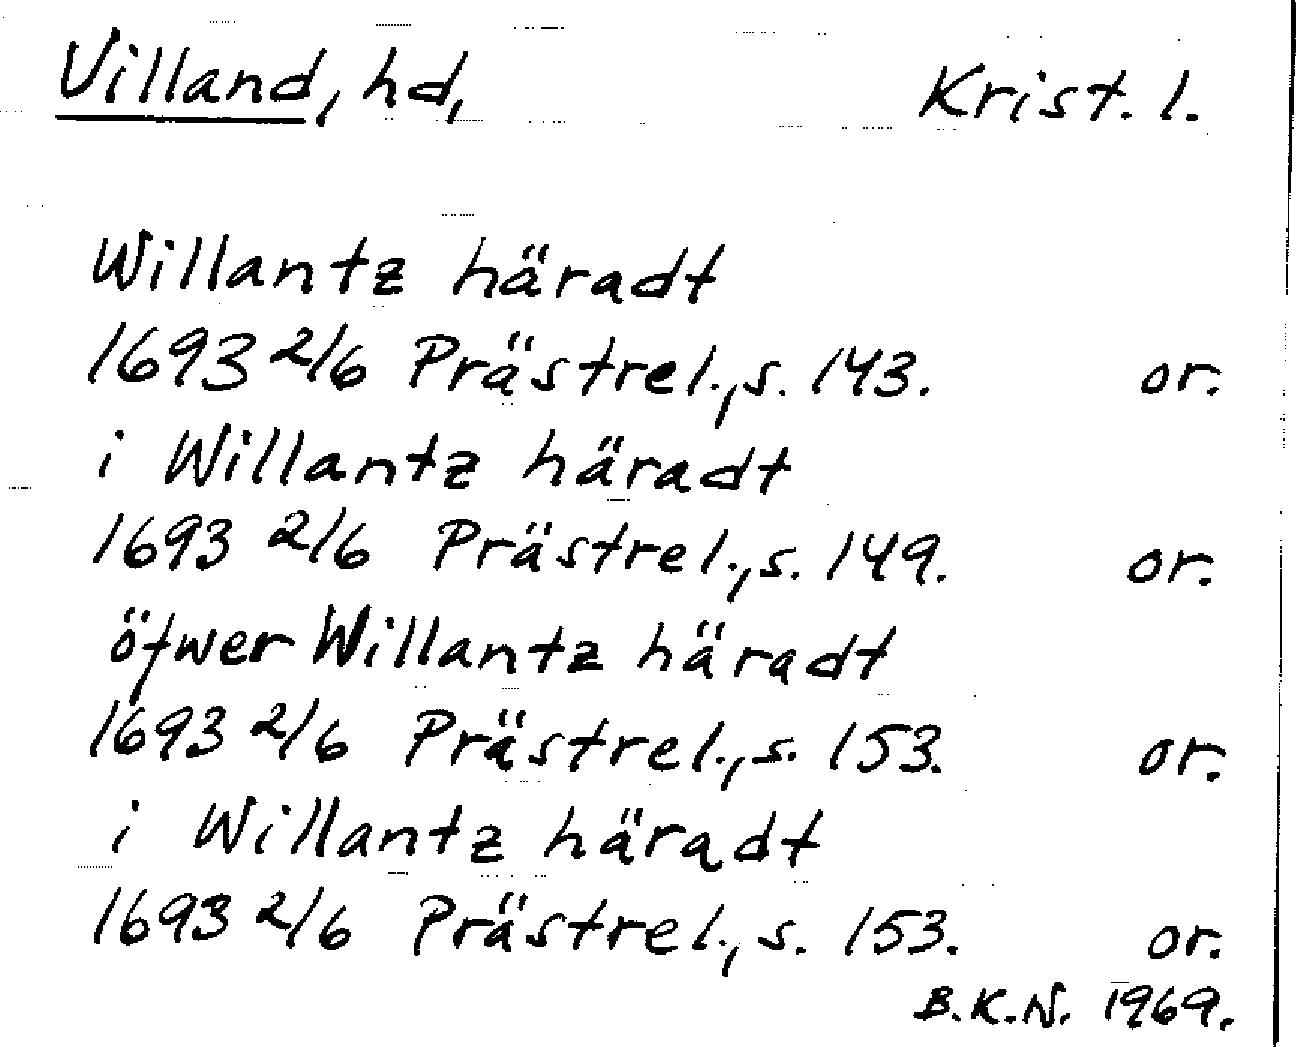 Villand, hd, Krist. l.
Willantz häradt
1693 2/6 Prästrel., s. 143. or.
i Willantz häradt
1693 2/6 Prästrel., s. 149. or.
öfwer Willantz häradt
1693 2/6 Prästrel., s. 153. or.
i Willantz häradt
1693 2/6 Prästrel., s. 153. or.
B.K.N. 1969.